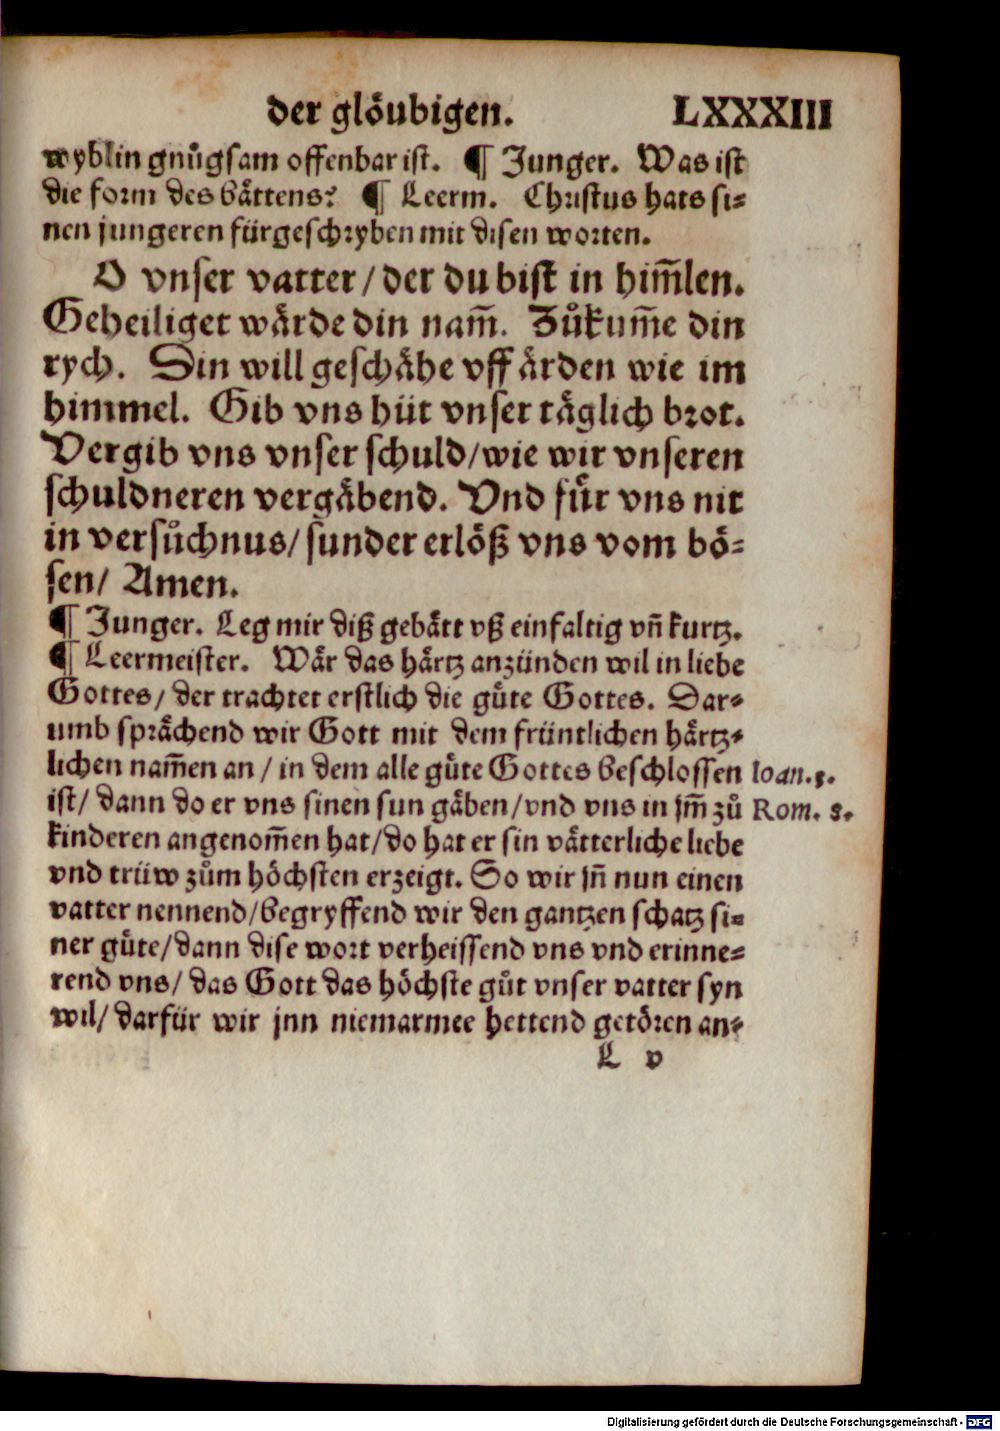 der glöubigen. LXXXIII
wyblin gnůgsam offenbar ist. ¶ Junger. Was ist
die form des bättens? ¶ Leerm. Christus hats si⸗
nen jungeren fürgeschryben mit disen worten.
O vnser vatter/ der du bist in him̃len.
Geheiliget wärde din nam̃. Zůkum̃e din
rych. Din will geschähe vff ärden wie im
himmel. Gib vns hüt vnser täglich brot.
Vergib vns vnser schuld/wie wir vnseren
schuldneren vergäbend. Vnd für vns nit
in versůchnus/ sunder erlöß vns vom bö⸗
sen/ Amen.
¶ Junger. Leg mir diß gebätt vß einfaltig vñ kurtz.
¶ Leermeister. Wär das härtz anzünden wil in liebe
Gottes/ der trachtet erstlich die güte Gottes. Dar⸗
umb sprächend wir Gott mit dem früntlichen härtz⸗
lichen nam̃en an / in dem alle güte Gottes beschlossen Ioan.3.
ist/ dann do er vns sinen sun gäben/vnd vns in jm̃ zů Rom. 8.
kinderen angenom̃en hat/do hat er sin vätterliche liebe
vnd trüw zům höchsten erzeigt. So wir jñ nun einen
vatter nennend/begryffend wir den gantzen schatz si⸗
ner güte/dann dise wort verheissend vns vnd erinne⸗
rend vns/ das Gott das höchste gůt vnser vatter syn
wil/ darfür wir jnn niemarmee hettend getören an⸗
L v
Digitalisierung gefördert durch die Deutsche Forschungsgemeinschaft - DFG